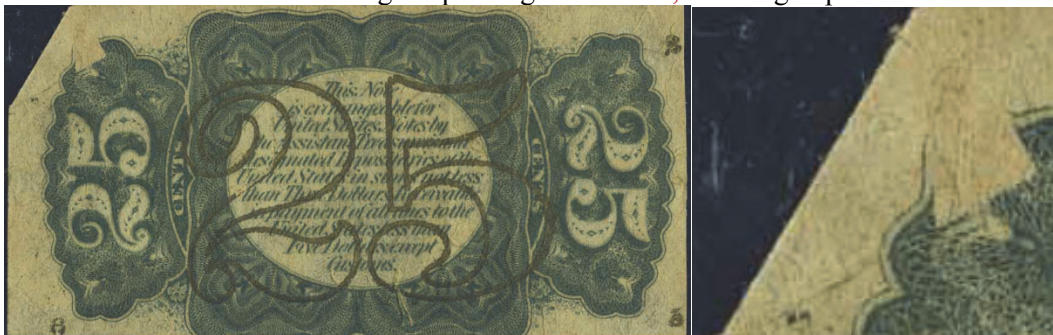 25
CENTS
25
This Note
is exchangeable for
United States Notes by
the Assistant Treasurers and
designated Depositaries of the
United States in sums not less
than Three Dollars. Receivable
in payment of all dues to the
United States less than
Five Dollars except
Customs.
CENTS
25